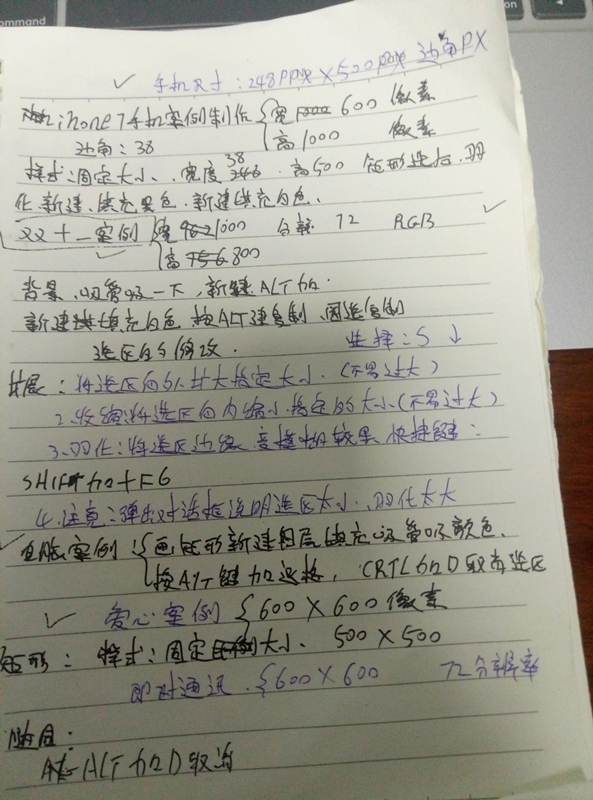 command
手机尺寸:248PPX×500PPX 边角PX
ihone7手机案例制作 {宽 600 像素
边角:38 高1000 像素
样式:固定大小、宽度 38 高500 矩形选框.羽
化新建.填充黑色.新建填充白色.
双十一案例 {宽 1000 分辨 72 RGB
高 6.800
背景.吸管吸一下,新键ALT加.
新建填充白色 按ALT建复制.圆选复制
选区的修改. 选择:S↓
扩展:将选区向外扩大指定大小.(不易过大)
2.收缩:将选区向内缩小指定的大小(不易过大)
3.羽化:将选区边缘 变模糊效果 快捷键:
SHIFT加+F6
4.注意:弹出对话框说明选区太小.羽化太大
电脑案例 {画矩形新建图层填充 吸管吸颜色.
按AlT键加退格, CRTL加D取消选区
爱心案例 {600×600像素
矩形: 样式:固定大小、 500×500
即时通讯.{600×600 72分辨率
ALT加D取消